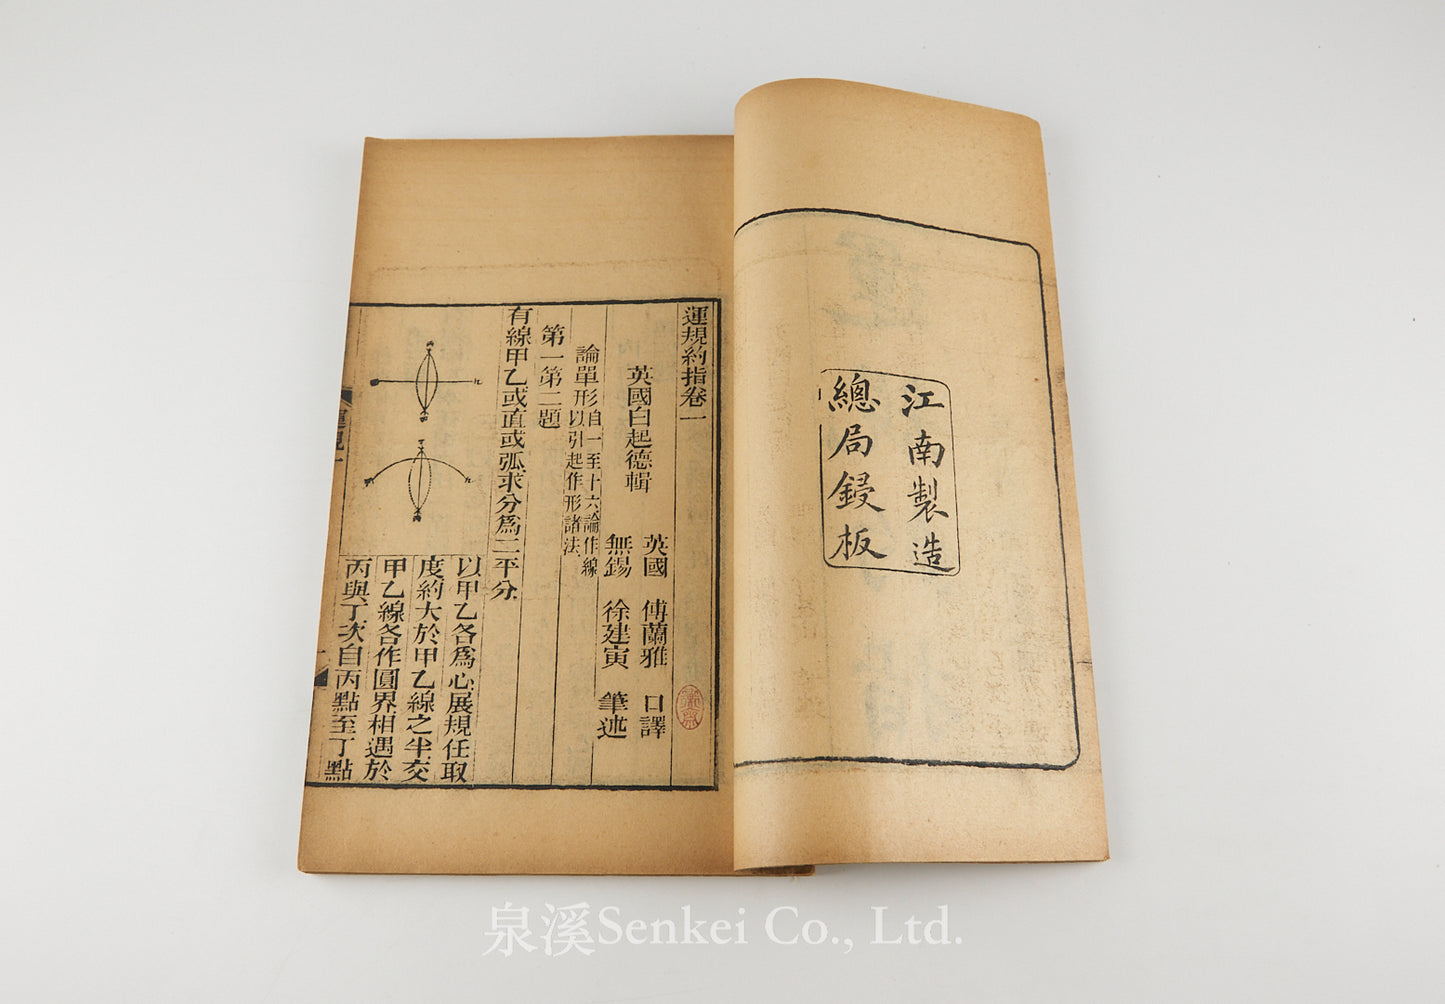 江南製造
總局鋟板
運規約指卷一
英國白起德輯
英國 傅蘭雅 口譯
無錫 徐建寅 筆述
論單形自一至十六論作線
以引起作形諸法
第一第二題
有線甲乙或直或弧求分爲二平分
以甲乙各爲心展規任取
度約大於甲乙線之半交
甲乙線各作圓界相遇於
丙與丁次自丙點至丁點
泉溪Senkei Co., Ltd.